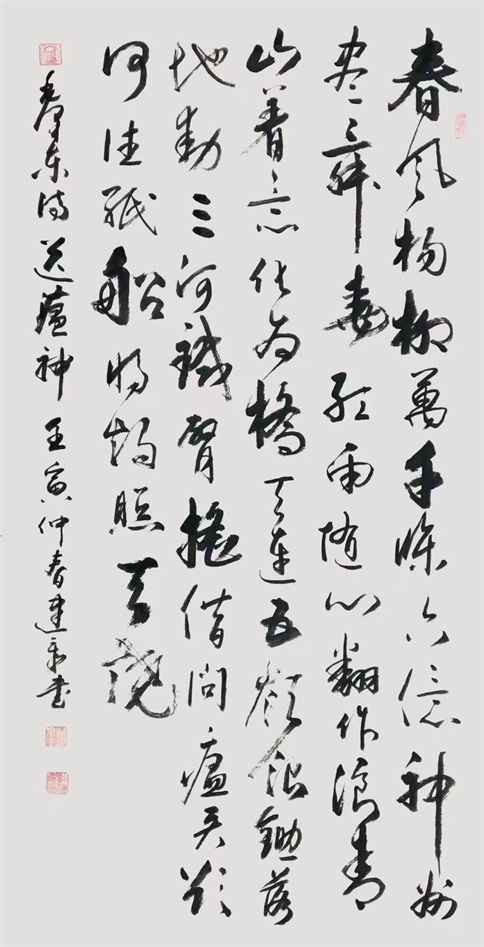 春風杨柳萬千條六億神州
尽舜堯红雨随心翻作浪青
山着意化为橋天連五嶺銀鋤落
地動三河鐵臂摇借問瘟君欲
何往紙船明烛照天燒
毛澤东诗送瘟神 壬寅仲春建书